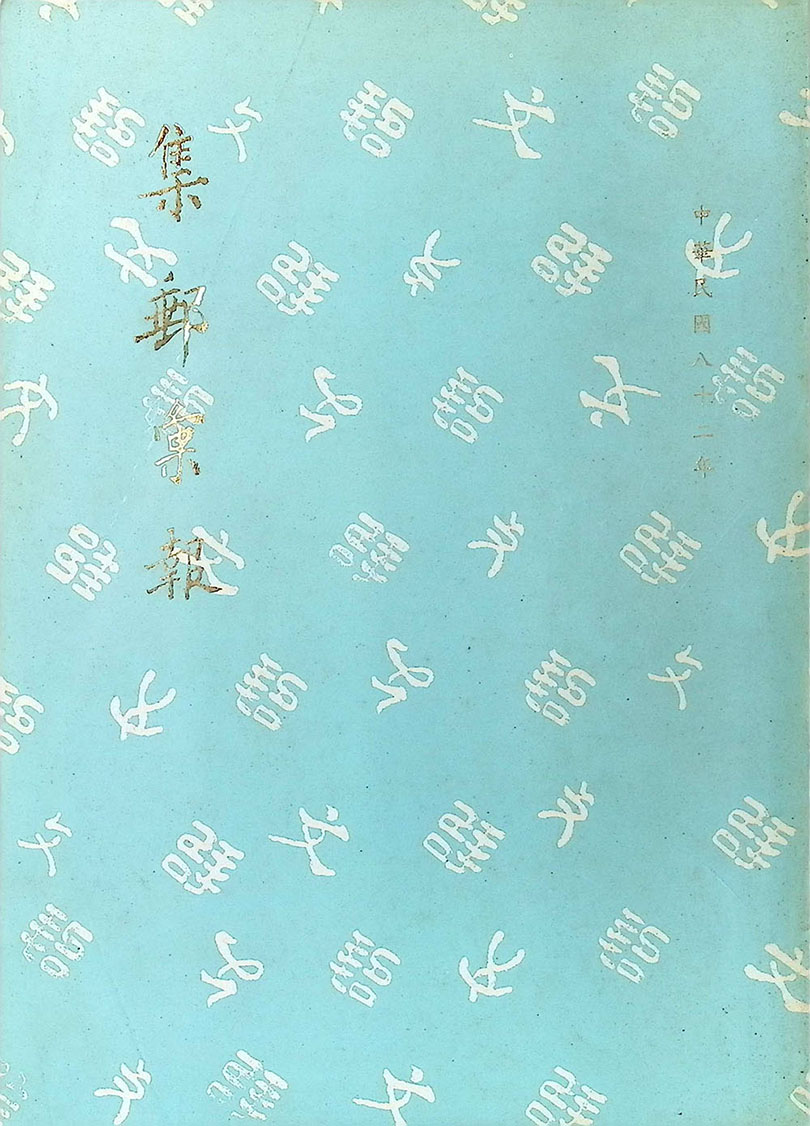 中華民國八十二年
集郵彙報